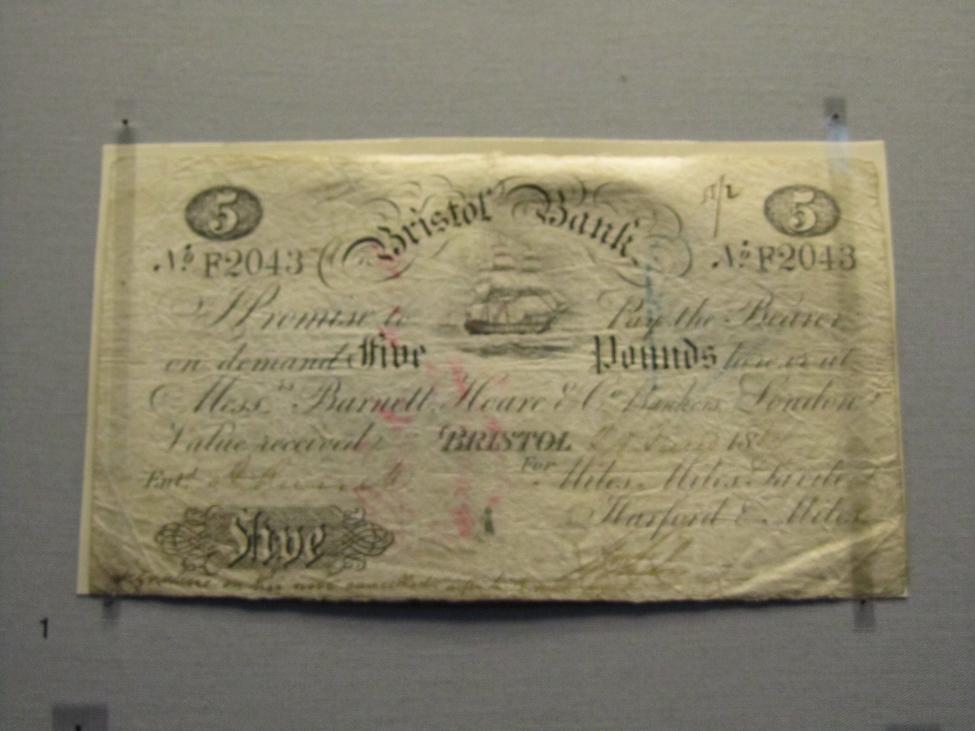 5 Bristol Bank 5
No F2043 No F2043
I Promise to Pay the Bearer
on demand Five Pounds here or at
Messrs Barnett, Hoare & Co Bankers London
Value received BRISTOL 18
For Miles, Miles,
Entd
Harford & Miles
Five
1